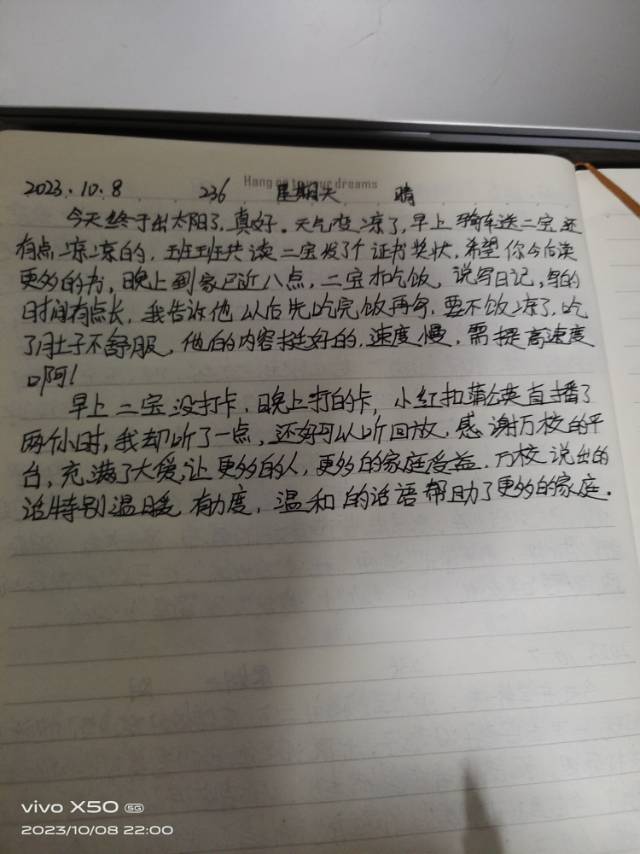 Hang on to your dreams
2023.10.8 236 星期天 晴
今天终于出太阳了,真好。天气变凉了,早上骑车送二宝还
有点凉凉的,班班共读二宝发了个证书奖状,希望你今后读
更多的书,晚上到家已近八点,二宝才吃饭,说写日记,写的
时间有点长,我告诉他以后先吃完饭再写,要不饭凉了,吃
了肚子不舒服,他的内容挺好的,速度慢,需提高速度
啊!
早上二宝没打卡,晚上打的卡,小红和蒲公英直播了
两个小时,我却听了一点,还好可以听回放,感谢万校的平
台,充满了大爱,让更多的人,更多的家庭受益。万校说出的
话特别温暖有力度,温和的话语帮助了更多的家庭。
vivo X50 5G
2023/10/08 22:00